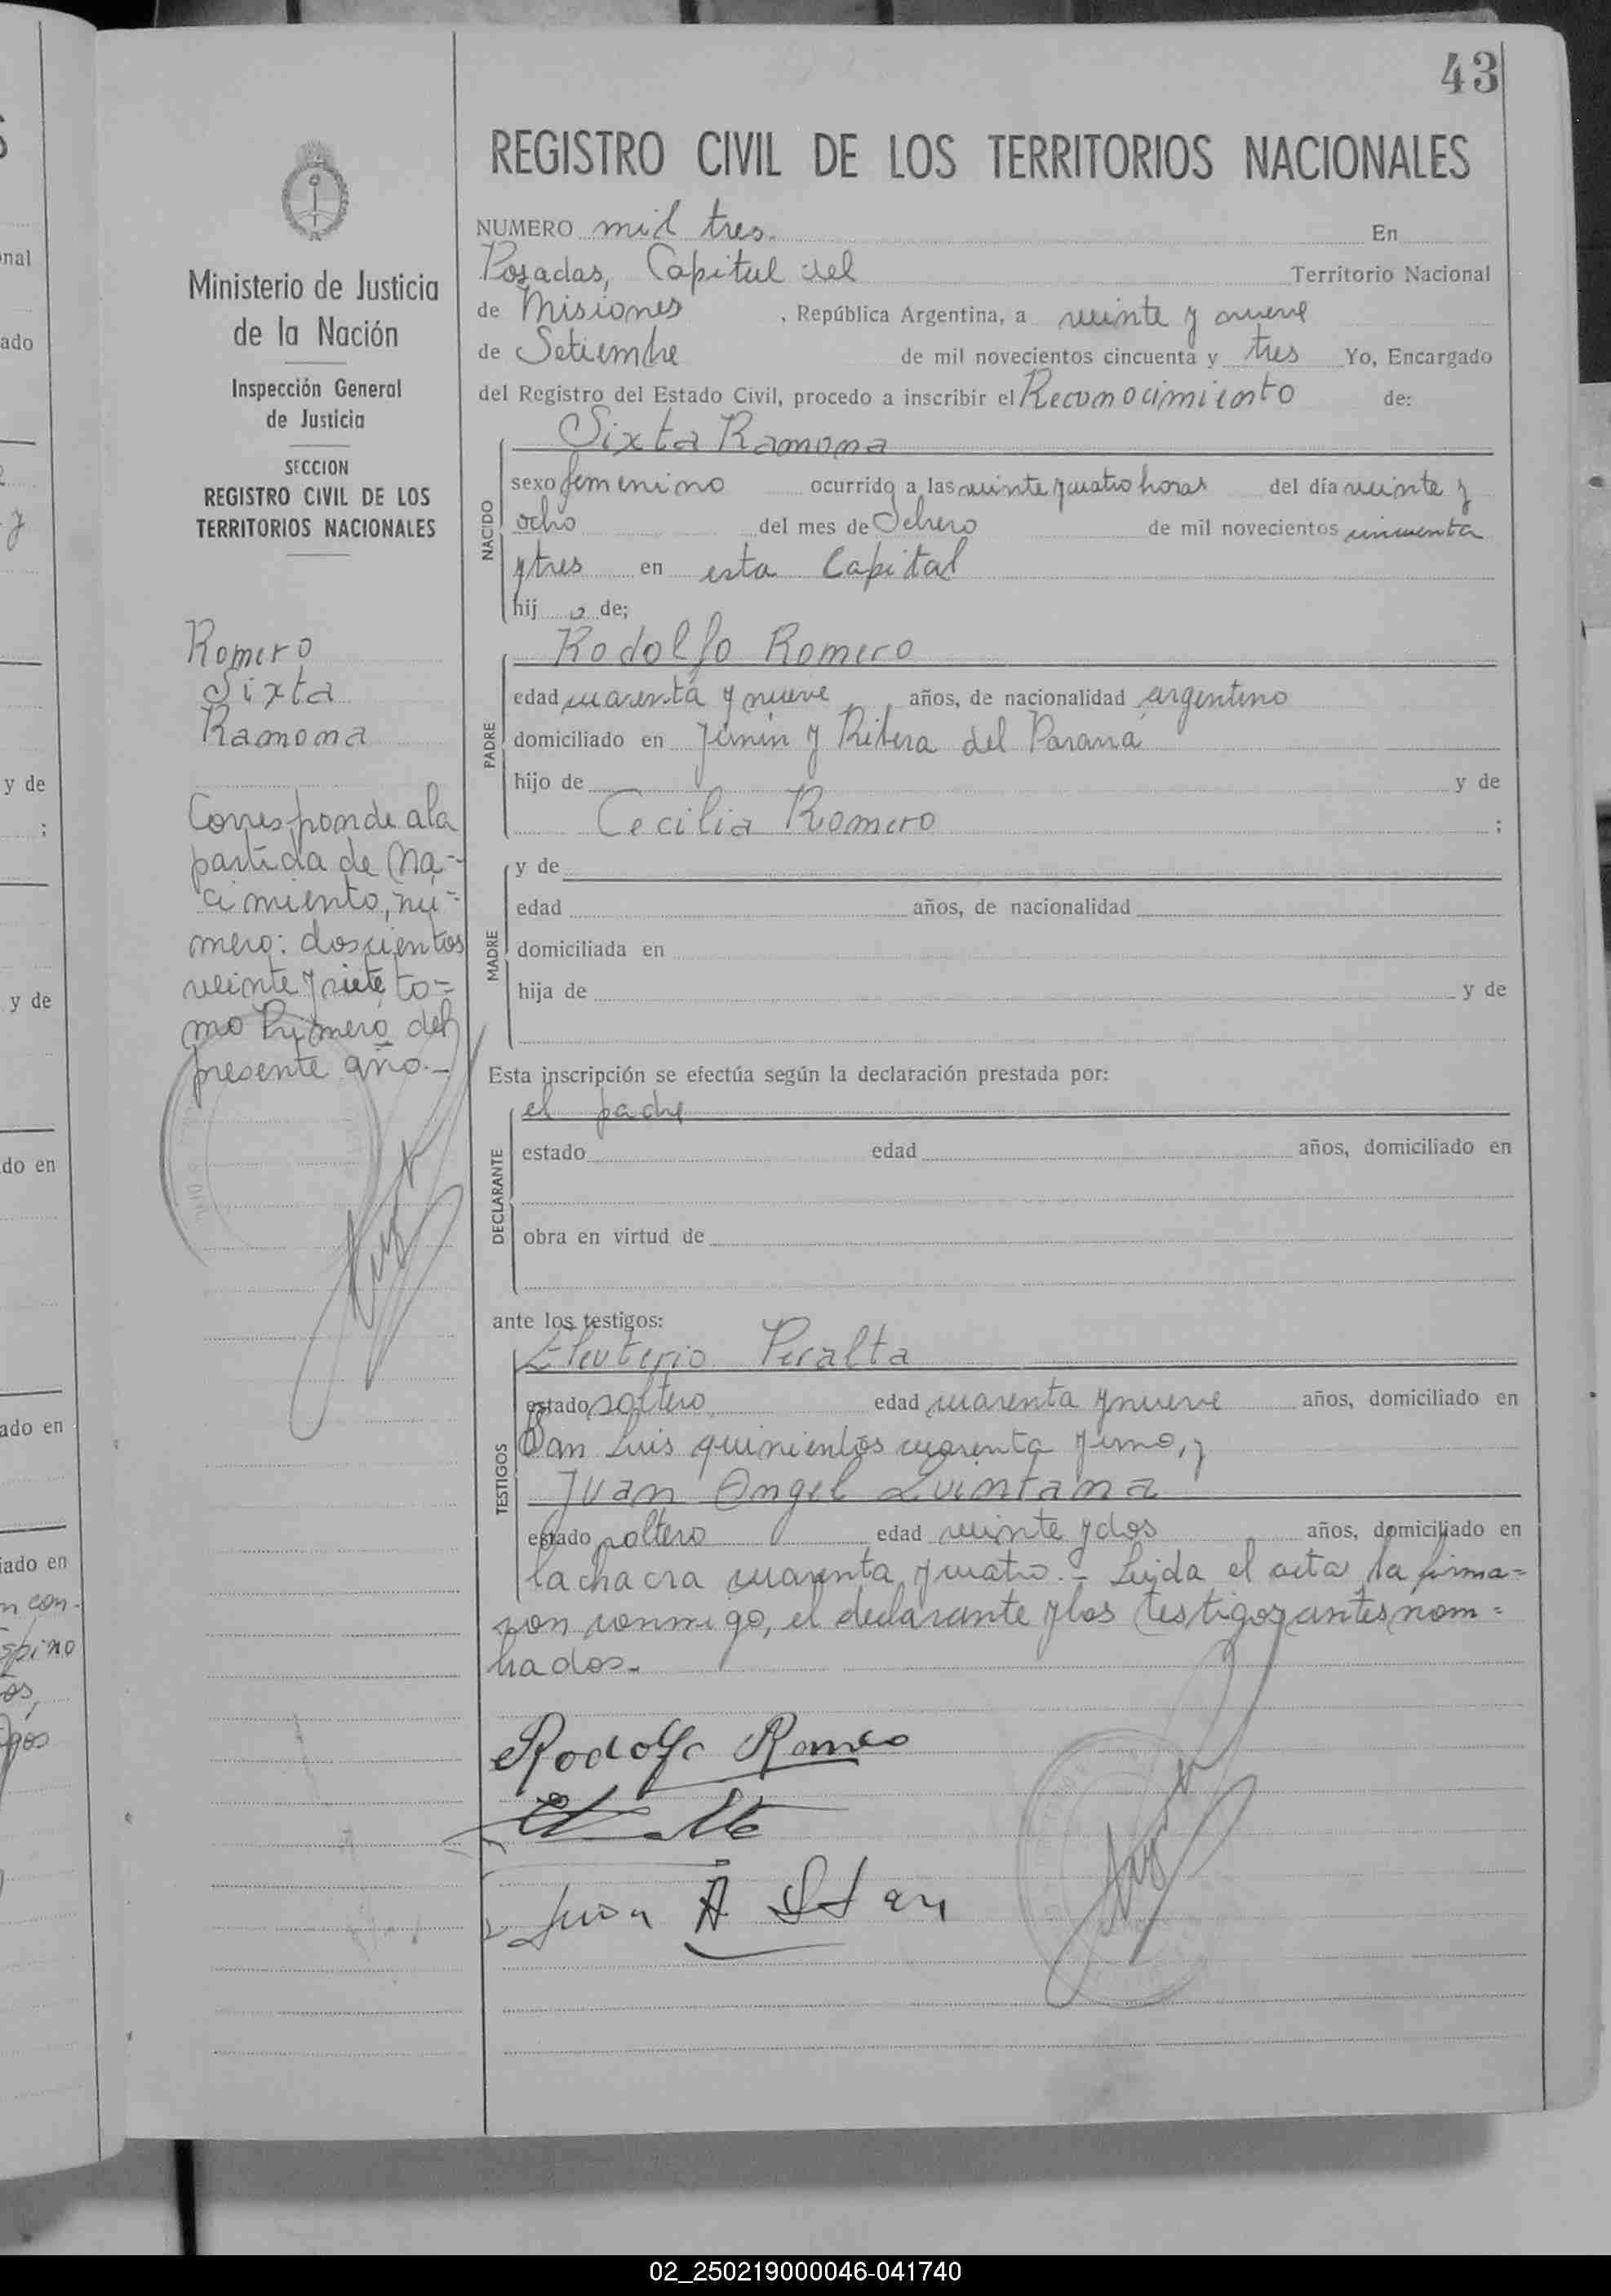 43
REGISTRO CIVIL DE LOS TERRITORIOS NACIONALES
NUMERO mil tres. En
Posadas, Capital del Territorio Nacional
de Misiones , República Argentina, a veinte y nueve
de Setiembre de mil novecientos cincuenta y tres Yo, Encargado
del Registro del Estado Civil, procedo a inscribir el Reconocimiento de:
Sixta Ramona
NACIDO
sexo femenino ocurrido a las veinte y cuatro horas del día veinte y
ocho del mes de Febrero de mil novecientos cincuenta
y tres en esta Capital
hij a de;
Rodolfo Romero
PADRE
edad cuarenta y nueve años, de nacionalidad argentino
domiciliado en Junin y Ribera del Paraná
hijo de y de
Cecilia Romero ;
MADRE
y de
edad años, de nacionalidad
domiciliada en
hija de y de
Esta inscripción se efectúa según la declaración prestada por:
el padre
DECLARANTE
estado edad años, domiciliado en
obra en virtud de
ante los testigos:
Eleuterio Peralta
TESTIGOS
estado soltero edad cuarenta y nueve años, domiciliado en
San Luis quinientos cuarenta y uno, y
Juan Angel Quintana
estado soltero edad veinte y dos años, domiciliado en
la chacra cuarenta y cuatro.- Leida el acta la firma=
ron conmigo, el declarante y los testigos antes nom=
brados.-
Rodolfo Romero
Juan A
Ministerio de Justicia
de la Nación
Inspección General
de Justicia
SECCION
REGISTRO CIVIL DE LOS
TERRITORIOS NACIONALES
Romero
Sixta
Ramona
Corresponde a la
partida de Na=
cimiento, nú=
mero: doscientos
veinte y siete to=
mo Primero del
presente año.-
onal
ado
y de
;
y de
do en
ado en
iado en
n con-
Espino
os,
gos
02_250219000046-041740